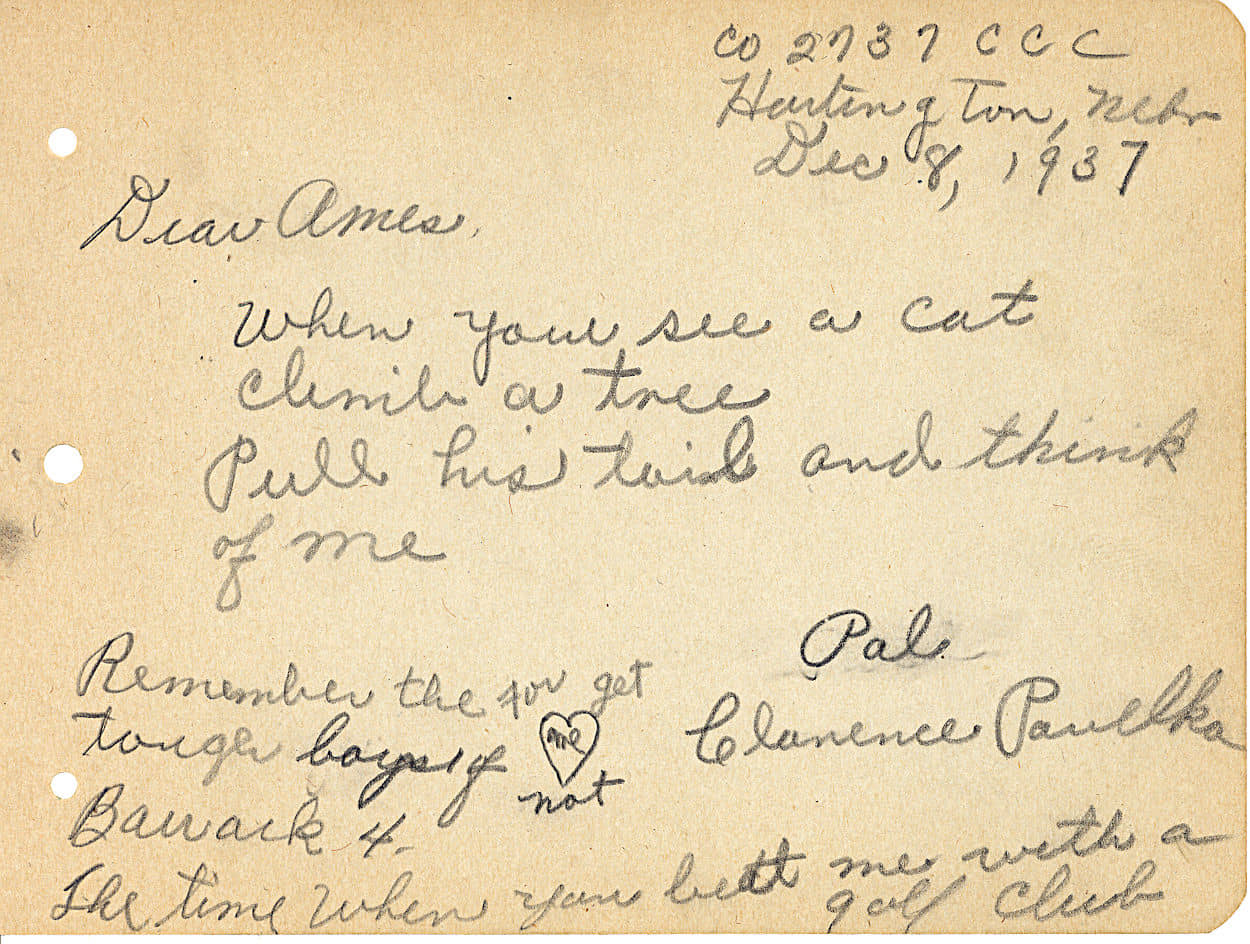 Co 2737 C C C
Hartington, Nebr
Dec 8, 1937
Dear Ames,
When your see a cat
climb a tree
Pull his tail and think
of me
Pal
Clarence Pavelka
Remember the
tough boys of
Barrack 4.
for get
me
not
The time when you beatt me with a
golf club